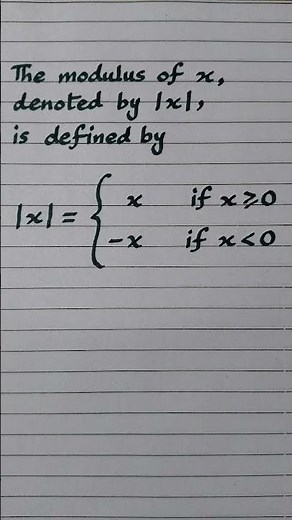 The modulus of x,
denoted by |x|,
is defined by
|x| = { x if x ⩾ 0
-x if x < 0